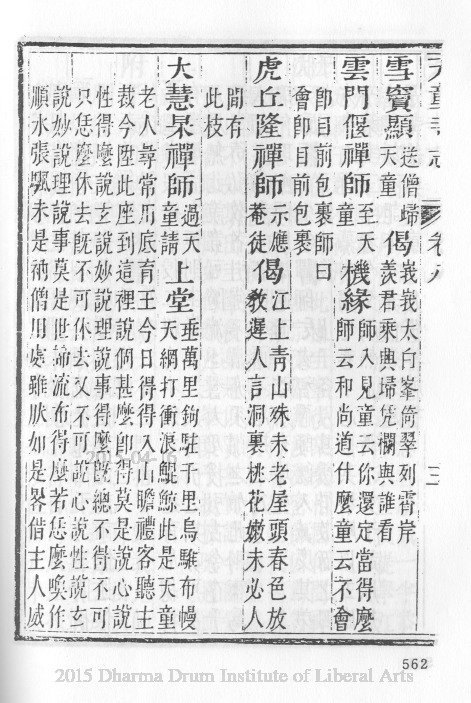 天童寺志 卷八 三
雪竇顯送僧歸天童偈峩峩太白峯倚翠列霄岸
羡君乘興歸凭欄與誰看
雲門偃禪師至天童機緣師入見童云你還定當得麼
師云和尚道什麼童云不會
卽曰前包裹師曰
會卽目前包裹
虎丘隆禪師示應菴徒偈江上青山殊未老屋頭春色放
教遲人言洞裏桃花嫩未必人
間有
此枝
大慧杲禪師過天童請上堂垂萬里鉤駐千里烏騅布幔
天網打衝浪鯤鯨此是天童
老人尋常用底育王今日得得入山瞻禮客聽主
裁今陞此座到這裡說個甚麼卽得莫是說心說
性得麼說玄說妙說理說事得麼旣總不得不可
只恁麼休去旣不可休去又不可說心說性說玄
說妙說理說事莫是世諦流布得麼若恁麼喚作
順水張颿未是衲僧用處雖然如是畧借主人威
2015-04-16
562
2015 Dharma Drum Institute of Liberal Arts